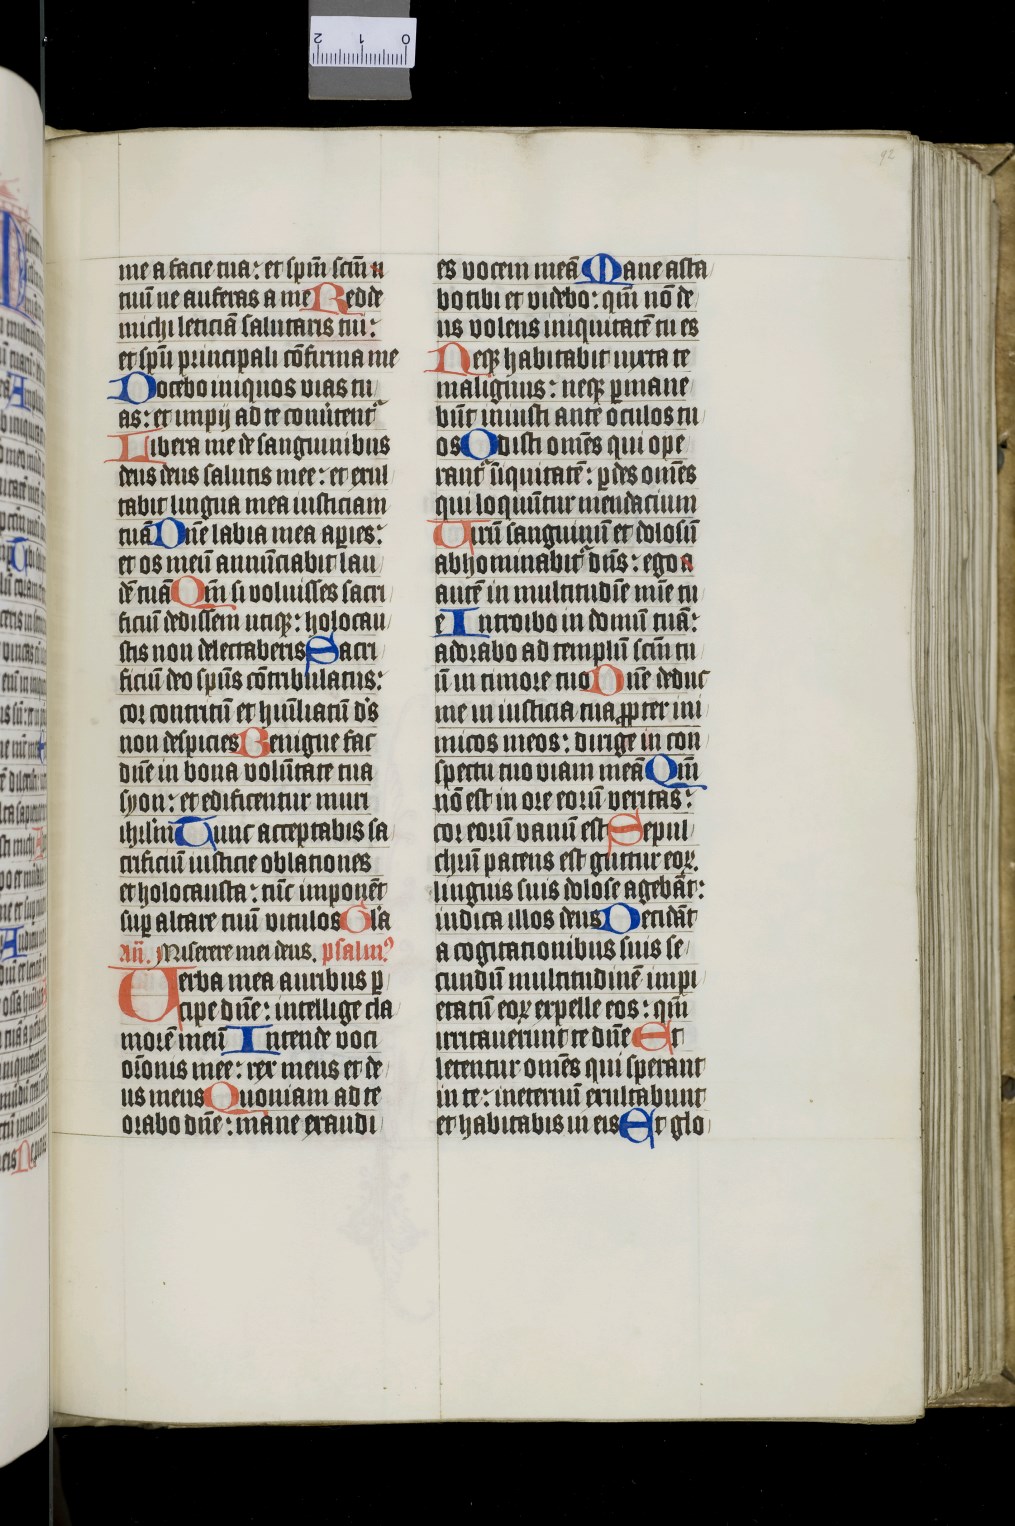 92
me a facie tua: et spm̄ sctm̄
tuū ne auferas a me Redde
michi leticiā salutaris tui:
et spū principali cōfirma me
Docebo iniquos vias tu
as: et impij ad te conūtent᷑
Libera me de sanguinibus
deus deus salutis mee: et exul
tabit lingua mea iusticiam
tuā Dn̄e labia mea apies:
et os meū annūciabit lau
dē tuā Qm̄ si voluisses sacri
ficiū dedissem utiqꝫ: holocau
stis non delectaberis Sacri
ficiū deo spūs cōtribulatus:
cor contritū et hūiliatū ds
non despicies Benigne fac
dn̄e in bona volūtate tua
syon: et edificentur muri
ihrlm̄ Tunc acceptabis sa
crificiū iusticie oblationes
et holocausta: tūc imponēt
suꝑ altare tuū vitulos Glā
Añ. Miserere mei deus. psalm⁹
Verba mea auribus ꝑ
cipe dn̄e: intellige cla
morē meū Intende voci
orōnis mee: rex meus et de
us meus Quoniam ad te
orabo dn̄e: mane exaudi
es vocem meā Mane asta
bo tibi et videbo: qm̄ nō de
us volens iniquitatē tu es
Neqꝫ habitabit iuxta te
malignus: neqꝫ ꝑmane
būt iniusti ante oculos tu
os Odisti omēs qui ope
rant᷑ iiquitatē: ꝑdes omēs
qui loquūtur mendacium
Virū sanguinū et dolosū
abhominabit᷑ dn̄s: ego
autē in multitudīe mīe tu
e Introibo in domū tuā:
adorabo ad templū sctm̄ tu
ū in timore tuo Dn̄e deduc
me in iusticia tua ꝓpter ini
micos meos: dirige in con
spectu tuo viam meā Qm̄
nō est in ore eorū veritas:
cor eorū vanū est Sepul
chrū patens est guttur eoꝝ.
linguis suis dolose agebāt:
iudica illos deus Decidāt
a cogitationibus suis se
cundū multitudinē impi
etatū eoꝝ expelle eos: qm̄
irritauerunt te dn̄e Et
letentur omēs qui sperant
in te: ineternū exultabunt
et habitabis in eis Et glo